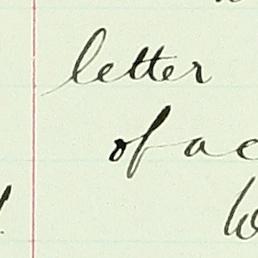 letter
of ac